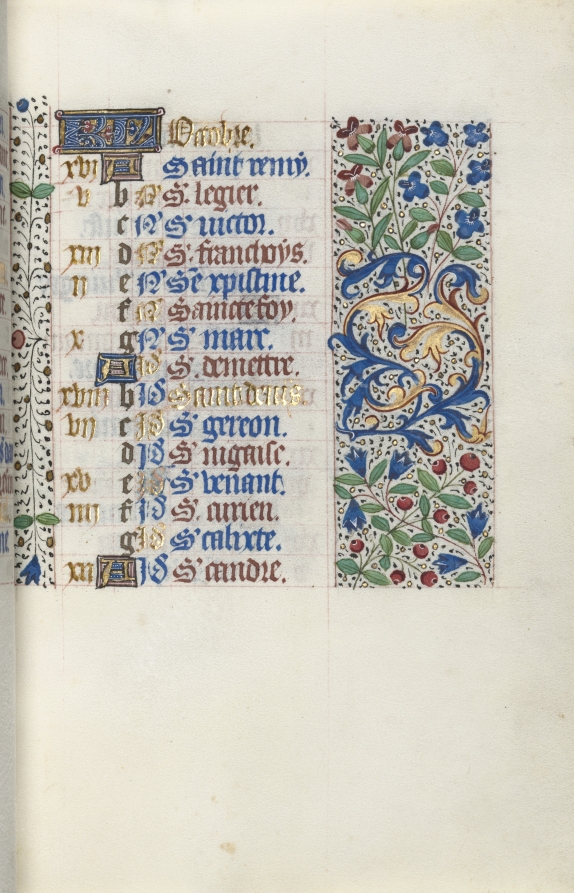 Octobre.
xvi A Saint remy.
v b N S. legier.
c N S victor.
xiii d N S. franchoys.
ii e N Se xpistine.
f N Saincte foy.
x g N S marc.
A Id S. demettre.
xviii b Id Saint denis.
vii c Id S gereon.
d Id S nigaise.
xv e S venant.
iiii f Id S. curien.
g Id S calixte.
xii A Id S candre.